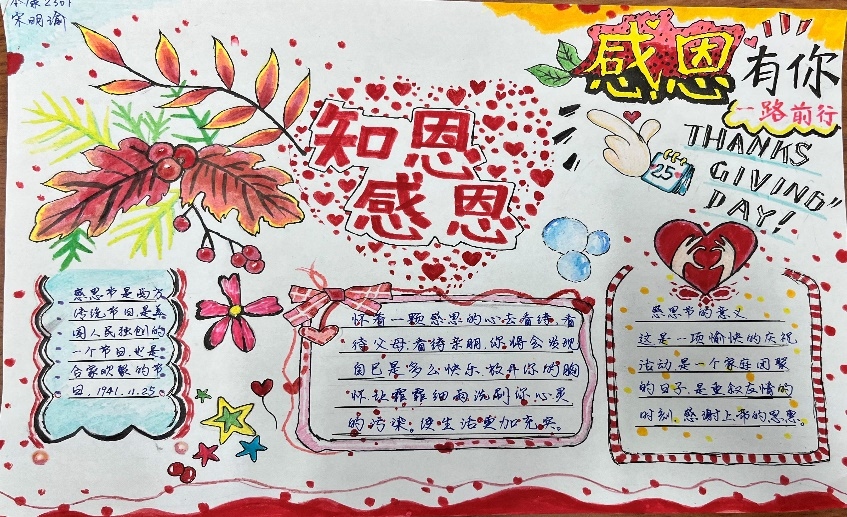 2301
宋明谕
感恩
有你
一路前行
知恩
感恩
THANKS
GIVING"
DAY!
25
感恩节是西方
传统节日,是美
国人民独创的
一个节日,也是
合家欢聚的节
日,1941.11.25
怀着一颗感恩的心去看待,看
待父母,看待亲朋,你将会发现
自己是多么快乐,放开你的胸
怀,让霏霏细雨洗刷你心灵
的污染。使生活更加充实。
感恩节的意义
这是一项愉快的庆祝
活动是一个家庭团聚
的日子,是重叙友情的
时刻,感谢上帝的恩惠。